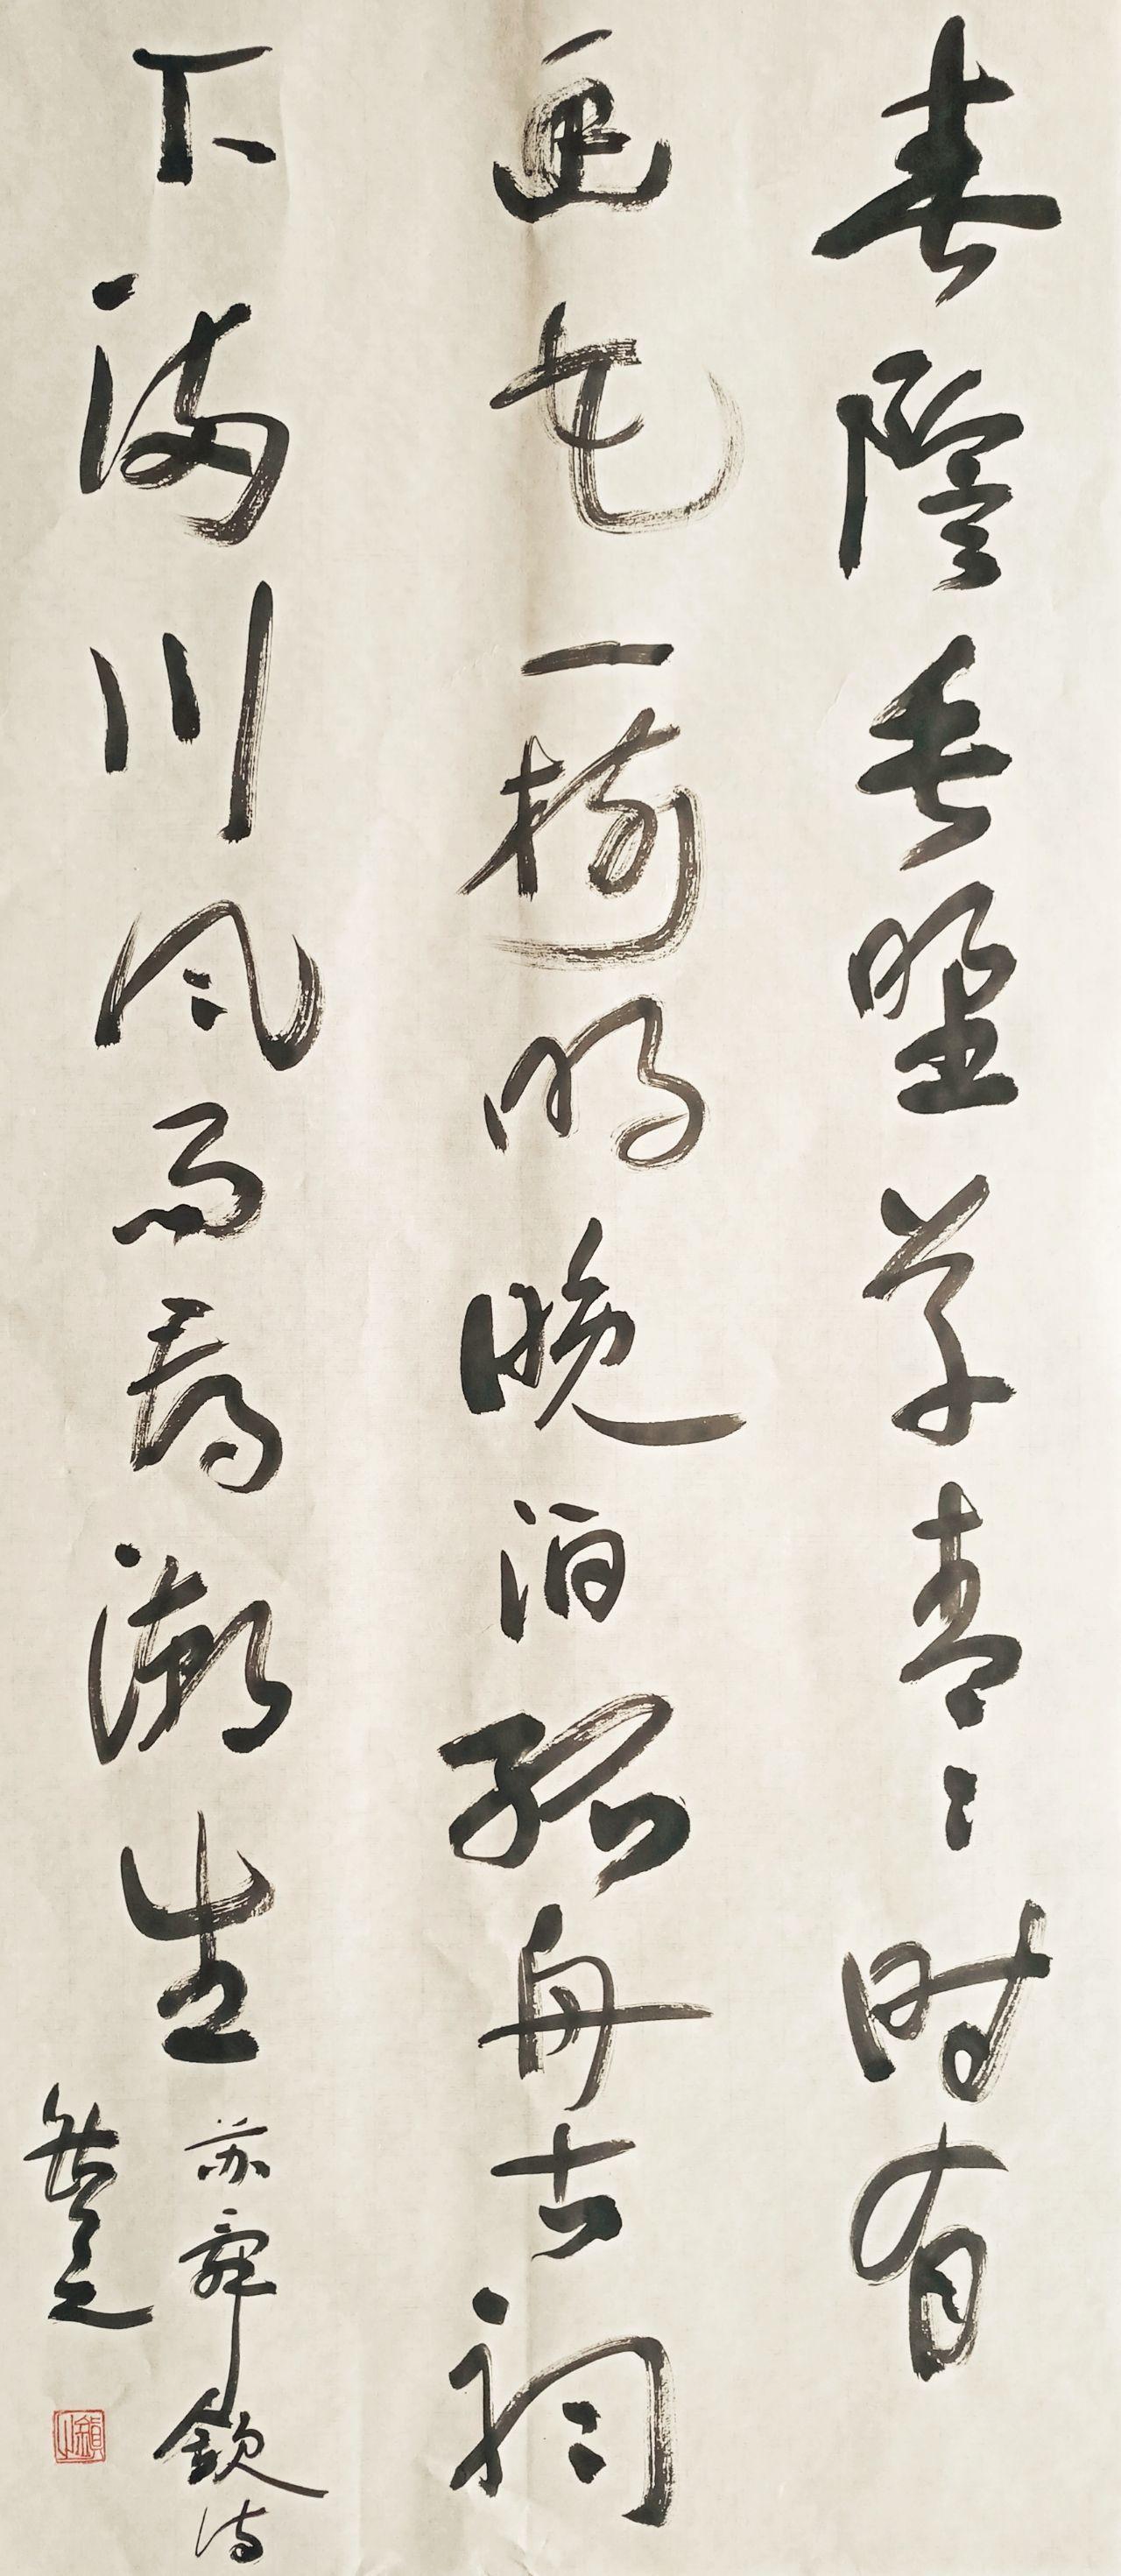 春陰垂野草青〻时有
幽花一樹明晚泊孤舟古祠
下满川风雨看潮生
苏舜欽诗